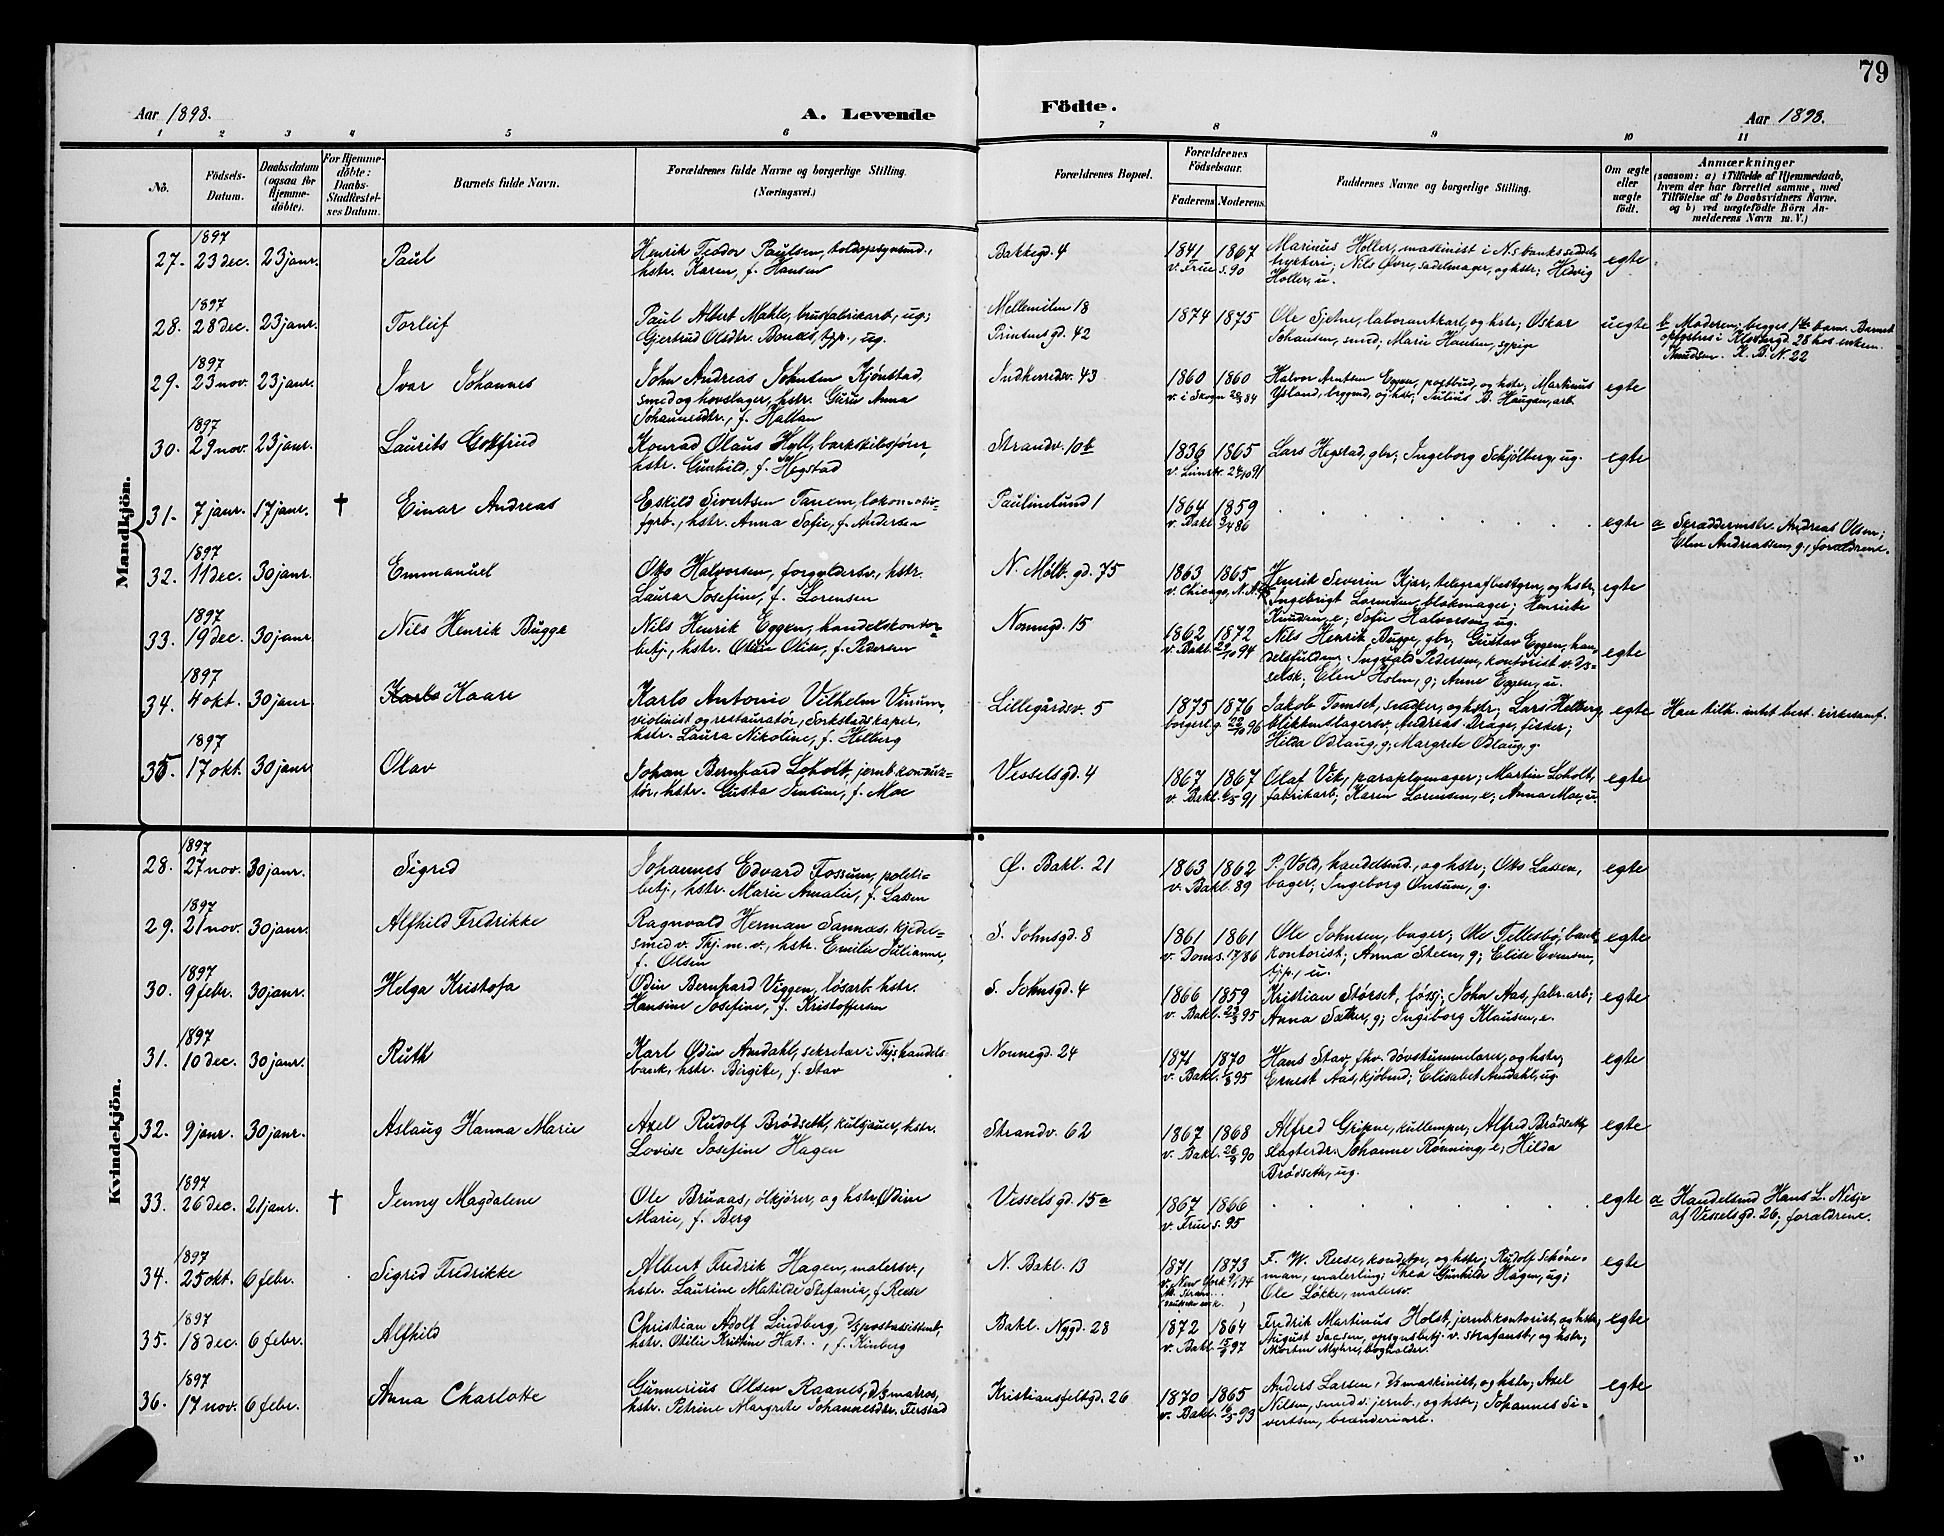 79
Aar 1898. A. Levende Födte. Aar 1898.
1 2 3 4 5 6 7 8 9 10 11
No. Födsels-Datum. Daabsdatum (ogsaa for Hjemmedöbte). For Hjemmedöbte: Daabs-Stadfæstelses Datum. Barnets fulde Navn. Forældrenes fulde Navne og borgerlige Stilling. (Næringsvei.) Forældrenes Bopæl. Forældrenes Födselsaar. Faderens. Moderens. Faddernes Navne og borgerlige Stilling. Om ægte eller uægte födt. Anmærkninger (saasom: a) i Tilfælde af Hjemmedaab, hvem der har forrettet samme, med Tilföielse af to Daabsvidners Navne, og b) ved uægtefödte Börn Anmelderens Navn m. V.)
Mandkjön.
1897
27. 23 dec. 23 janr. Paul Henrik Teodor Paulsen, toldopsynsmd., Bakkegd. 4 1841 1867 Marinus Holler, maskinist i N.s banks seddel- egte
hstr. Karen, f. Hansen v. Frue s. 90 trykkeri; Nils Øvre, sadelmager, og hstr; Hedvig
Holler, u.
1897
28. 28 dec. 23 janr. Torleif Paul Albert Mahle, brusfabrikarb., ug; Mellemilen 18 1874 1875 Ole Sjetne, laborantkarl, og hstr; Oskar uegte b Moderen; begges 1ste barn. Barnet
Gjertrud Olsdtr. Bonæs, tjp., ug. Printzens gd. 42 Johansen, smed; Marie Hansen, sypige opfostres i Kløvergd. 28 hos enkem.
Knudsen. K. B. N. 22
1897
29. 23 nov. 23 janr. Ivar Johannes John Andreas Johnsen Kjønstad, Indherredsv. 43 1860 1860 Halvor Arntsen Eggen, postbud, og hstr; Martinus egte
smed og hovslager, hstr. Guru Anna v. i Skogn 84 Ystand, brygmd, og hstr; Julius B. Haugen, arb.
Johannesdtr., f. Hallan
1897
30. 29 nov. 23 janr. Laurits Gotfried Konrad Olaus Hyll, barkskibsfører, Strandv. 10b 1836 1865 Lars Hegstad, gbr; Ingeborg Schjølberg, ug. egte
hstr. Gunhild, f. Hegstad v. 24/10 91
31. 7 janr. 17 janr. † Einar Andreas Eskild Sivertsen Tanem, lokomotiv- Paulinelund 1 1864 1859 egte a Skræddermstr. Andreas Olsen;
fyrb., hstr. Anna Sofie, f. Andersen v. Bakl 86 Elen Andreassen, g; forældrene.
1897
32. 11 dec. 30 janr. Emmanuel Oto Halvorsen, forgyldersv., hstr. N. Møllb. gd. 75 1863 1865 Henrik Severin Kjær, telegrafbestyrer, og hstr; egte
Laura Josefine, f. Lorensen v. Chicago, N. A. Ingebrigt Lorensen, blokmager; Henriette
Knudsen, e; Sofie Halvorsen, ug.
1897
33. 19 dec. 30 janr. Nils Henrik Bugge Nils Henrik Eggen, handelskontor- Nonnegd. 15 1862 1872 Nils Henrik Bugge, gbr; Gustav Eggen, han- egte
betj., hstr. Otilie Olise, f. Pedersen v. Bakl. 29/10 94 delsfuldm; Ingvald Pedersen, kontorist v. Ds-
selsk; Elen Holm, g; Anne Eggen, u.
1897
34. 4 okt. 30 janr. Karlo Kaare Karlo Antonio Vilhelm Vinum, Lillegårdsv. 5 1875 1876 Jakob Tomset, snedker, og hstr; Lars Helberg egte Han tilh. intet best. kirkesamf.
violinist og restauratør, Sorkstadskaper, borgerl. g. 22/10 96 blikkenslagersv; Andreas Drage, fisker;
hstr. Laura Nikoline, f. Helberg Hilda Odlaug, g; Margrete Odlaug, g.
1897
35. 17 okt. 30 janr. Olav Johan Bernhard Loholt, jernb.konduk- Vesselsgd. 4 1867 1867 Olaf Vik, paraplymager; Martin Loholt, egte
tør, hstr. Gusta Jensine, f. Moe v. Bakl. 6/5 91 fabrikarb; Karen Lorensen, e; Anna Moe, u.
Kvindekjön.
1897
28. 27 nov. 30 janr. Sigrid Johannes Edvard Fossum, politi- Ø. Bakl. 21 1863 1862 P. Vold, handelsmd., og hstr; Oto Lassen, egte
betj., hstr. Marie Amalie, f. Lassen v. Bakl. 89 bager; Ingeborg Onsum, g.
1897
29. 21 nov. 30 janr. Alfhild Fredrikke Ragnvald Herman Sannæs, kjedel- S. Johnsgd. 8 1861 1861 Ole Johnsen, bager; Ole Tillesbø, bank- egte
smed v. Thj. m. v., hstr. Emilie Julianne, v. Doms. 17/ 86 kontorist; Anna Steen, g; Elise Evensen,
f. Olsen tjp., u.
1897
30. 9 febr. 30 janr. Helga Kristofa Odin Bernhard Viggen, løsarb. hstr. S. Johnsgd. 4 1866 1859 Kristian Størset, fossj; John Aas, fabr.arb; egte
Hansine Josefine, f. Kristoffersen v. Bakl. 95 Anna Sæther, g; Ingeborg Klausen, e.
1897
31. 10 dec. 30 janr. Ruth Karl Odin Amdahl, sekretær i Thjs handels- Nonnegd. 24 1871 1870 Hans Stav, fhv. døvstummelærer, og hstr; egte
bank, hstr. Birgitte, f. Stav v. Bakl. 95 Ernest Aas, kjøbmd; Elisabet Amdahl, ug.
32. 9 janr. 30 janr. Aslaug Hanna Marie Axel Rudolf Brødseth, kulsjauer, hstr. Strandv. 62 1867 1868 Alfred Gripne, kullemper; Alfred Brødseth, egte
Lovise Josefine Hagen v. Bakl. 26/ 90 slagterdr. Johanne Rønning, e; Hilda
Brødseth, ug.
1897
33. 26 dec. 21 janr. † Jenny Magdalene Ole Bruaas, ølkjører, og hstr. Odine Vessels gd. 15a 1867 1866 egte a Handelsmd Hans L. Nesje
Marie, f. Berg v. Frue s. 95 af Vesselsgd. 26; forældrene.
1897
34. 25 okt. 6 febr. Sigrid Fredrikke Albert Fredrik Hagen, malersv., N. Bakl. 13 1871 1873 F. W. Reese, konditor, og hstr; Rudolf Schöne- egte
hstr. Laurine Matilde Stefania, f. Reese v. New York 94 man, malerling; Thea Gunhilde Hagen, ug;
Ole Løkke, malersv.
1897
35. 18 dec. 6 febr. Alfhild Christian Adolf Lindberg, Dspostassistent, Bakl. Nygd. 28 1872 1864 Fredrik Martinus Holst, jernb.kontorist, og hstr; egte
hstr. Otilie Kristine Hat.., f. Kinberg v. Bakl. 15/ 97 August Saasen, opsynsbetj. v. strafanst., og hstr;
Morten Myhre, bogholder.
1897
36. 17 nov. 6 febr. Anna Charlotte Gunnerius Olsen Raanes, Dsmatros, Kristiansfeltgd. 26 1870 1865 Anders Larsen, Dsmaskinist, og hstr; Axel egte
hstr. Petrine Margrete Johannesdtr. Ferstad v. Bakl. 93 Nilsen, smed v. jernb., og hstr; Johannes Si-
vertsen, brænderiarb.